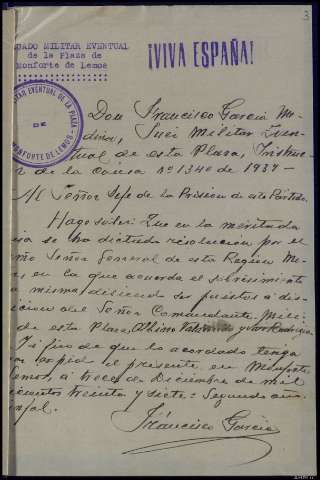 3
UADO MILITAR EVENTUAL
de la Plaza de
Monforte de Lemos
¡VIVA ESPAÑA!
TAR EVENTUAL DE LA PLAZA
DE
MONFORTE DE LEMOS
Don Francisco García Me-
dina, Juez Militar Even-
tual de esta Plaza, Instruc-
r de la Causa nº 1340 de 1937-
Al Señor Jefe de la Prision de este Partido.
Hago saber: Que en la meritada
sa se ha dictado resolucion por el
mo Señor General de esta Region Mi-
r en la que acuerda el sobreseimiento
a misma debiendo ser puestos a dis-
icion del Señor Comandante Mili-
de esta Plaza, Albino y
Y a fin de que lo acordado tenga
expido el presente en Monforte
Lemos, a trece de Diciembre de mil
cientos treinta y siete: Segundo año
nfal.
Francisco García